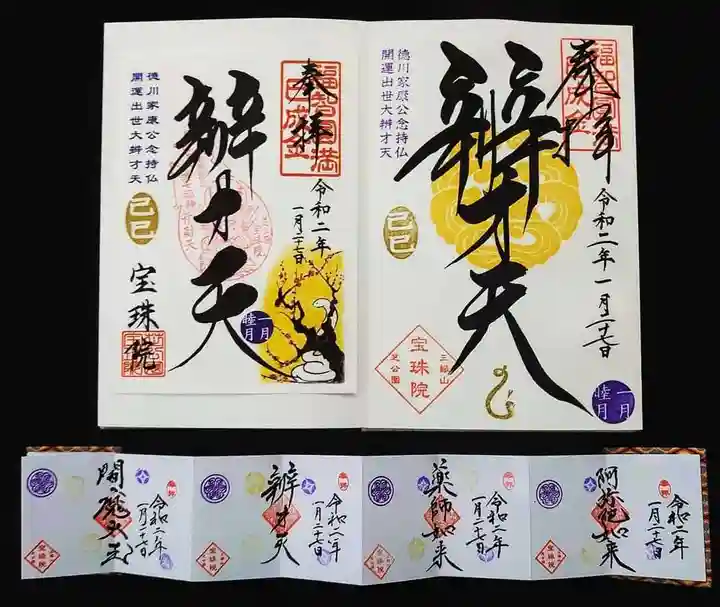 奉拝
福智円満
令和二年
一月二十七日
辨才天
徳川家康公念持仏
開運出世大辨才天
己巳
宝珠院
一月
睦月
奉拝
令和二年一月二十七日
辨才天
徳川家康公念持仏
開運出世大辨才天
己巳
三縁山
宝珠院
芝公園
一月
睦月
阿弥陀如来
令和二年
一月二十七日
宝珠院
薬師如来
令和二年
一月二十七日
宝珠院
辨才天
令和二年
一月二十七日
宝珠院
閻魔大王
令和二年
一月二十七日
宝珠院